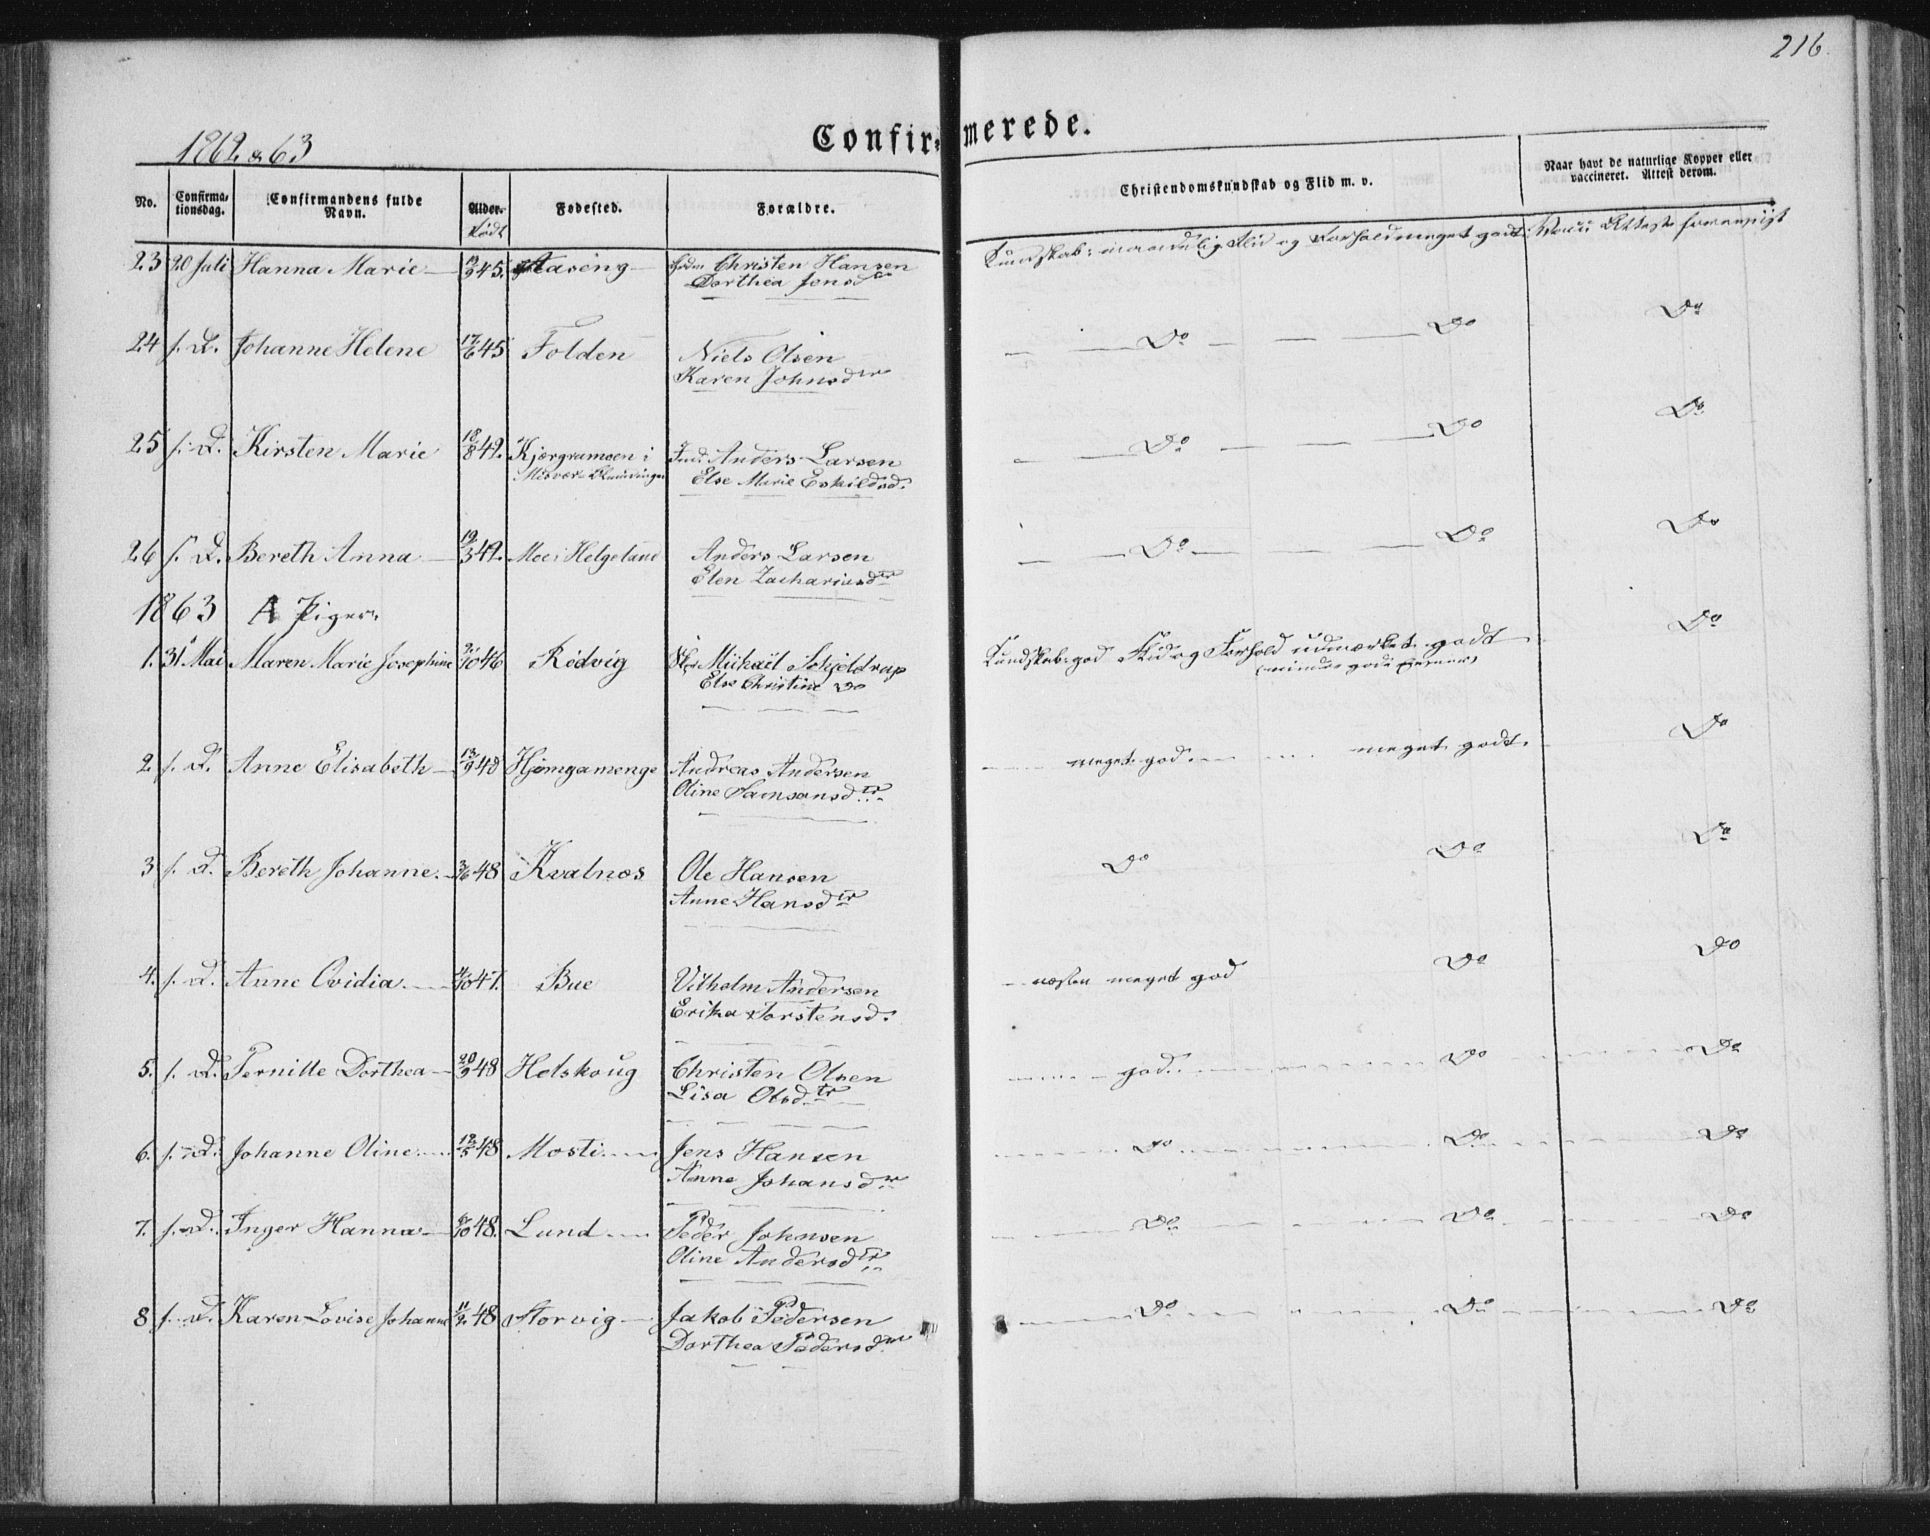 216.
Confirmerede.
1862 & 63
No. Confirmationsdag. Confirmandens fulde Navn. Alder. Født Fødested. Forældre. Christendomskundskab og Flid m. v. Naar havt de naturlige Kopper eller vaccineret. Attest derom.
23 20 Juli Hanna Marie 45. Christen Hansen Kundskab: maadelig Flid og Forhold meget godt. Attest foreviist
Dorthea Jensd
24 s. D. Johanne Helene 17/6 45 Folden Niels Olsen Do Do Do
Karen Johnsdtr
25 s. D. Kirsten Marie 18/8 42. Kjærgramoen i Anders Larsen Do Do Do
Misvær Else Marie Eskildsd.
26 s. D. Bereth Anna 19/3 42. Mo i Helgeland Anders Larsen Do Do Do
Elen Zachariasdtr
1863 A Piger.
1. 31 Mai Maren Marie Josephine 46 Rødvig Mikail Schjeldrup Kundskab: god Flid og Forhold udmærket godt Do
Else Christine Do (mindre gode Evner)
2. s. D. Anne Elisabeth 13/9 48 Hjemgamenge Andreas Andersen meget god meget godt. Do
Oline Samsonsdtr
3 s. D. Bereth Johanne. 3/6 48 Kvalnes Ole Hansen Do Do Do
Anne Hansdtr
4. s. D. Anne Ovidia 47. Bue Vilhelm Andersen næsten meget god Do Do
Erika Torstensd.
5. s. D. Pernille Dorthea 20/9 48 Helskoug Christen Olsen god Do Do
Lisa Olsdtr
6. s. D. Johanne Oline 48 Mosti Jens Hansen Do Do Do
Anne Johansdtr
7. s. D. Inger Hanna 48. Lund Peder Johnsen Do Do Do
Oline Andersdtr
8 s. D. Karen Lovise Johanne 11/2 48 Storvig Jakob Pedersen Do Do Do
Dorthea Pedersdtr